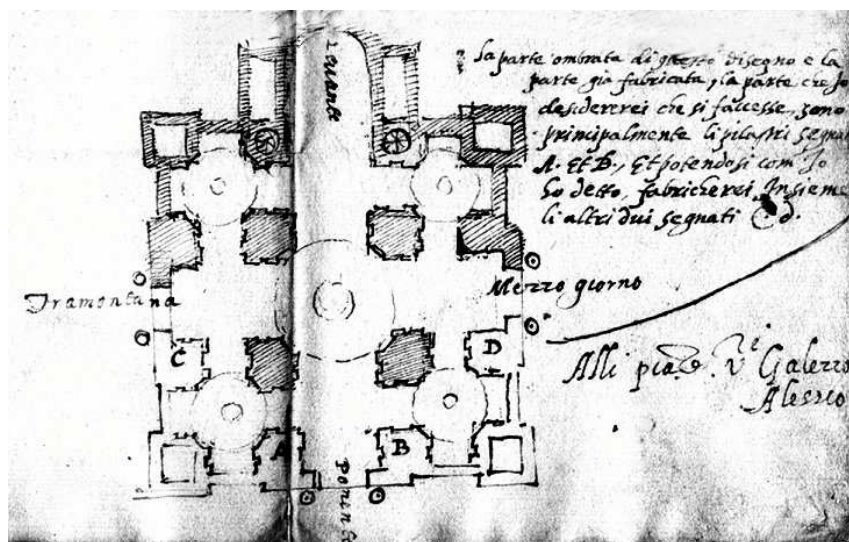 Levante
la parte ombrata di questo disegno e la
parte già fabricata, la parte che Jo
desidererei che si facesse, sono
principalmente li pilastri segnati
A. et B., Et potendosi com Jo
ho detto, fabricherei Insieme
li altri dui segnati C. d.
Tramontana
Mezzo giorno
C
D
Galezzo
Alessio
A
B
Ponente